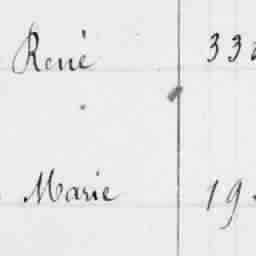 René 33
Marie 19